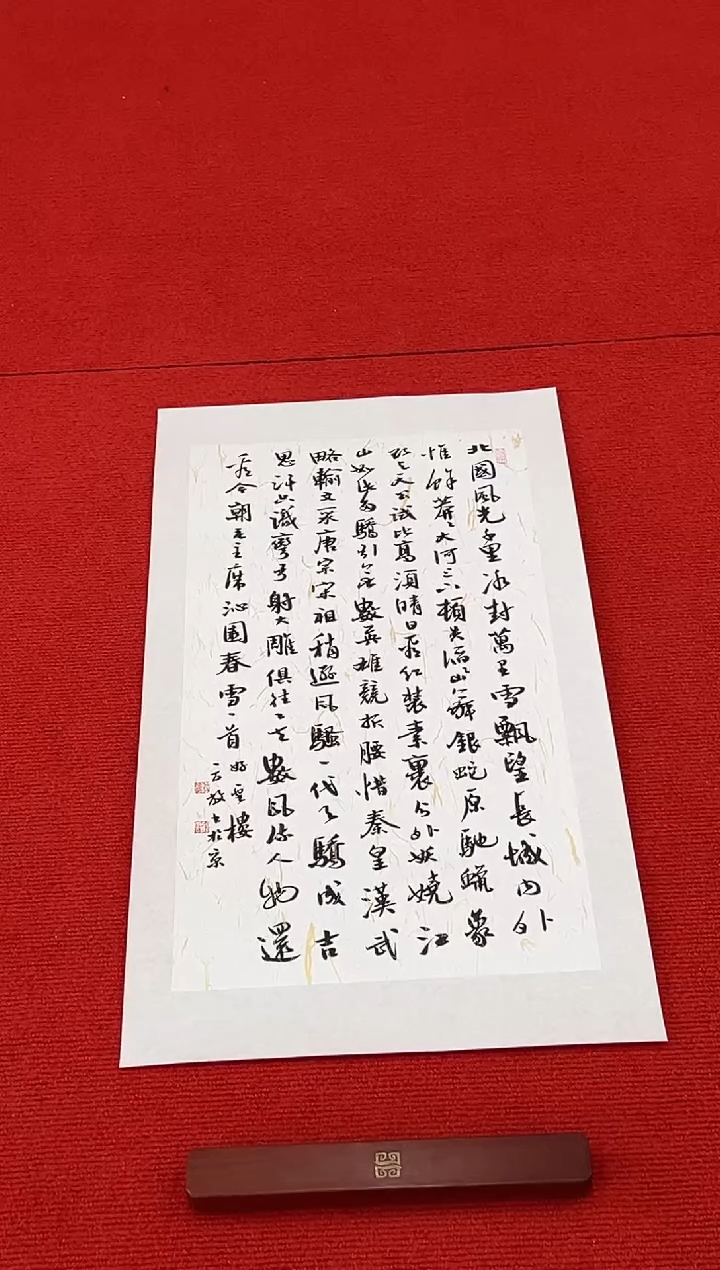 北國風光千里冰封萬里雪飄望長城內外
惟餘莽〻大河上下頓失滔〻山舞銀蛇原馳蠟象
欲與天公試比高須晴日看紅裝素裹分外妖嬈江
山如此多驕引無數英雄競折腰惜秦皇漢武
略輸文采唐宗宋祖稍遜風騷一代天驕成吉
思汗只識彎弓射大雕俱往矣數風流人物還
看今朝毛主席沁園春雪一首
樓
於京